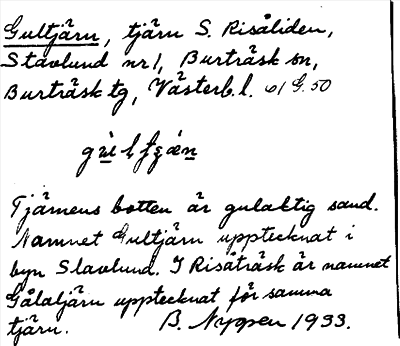 Gultjärn, tjärn S. Risåliden,
Stavlund nr 1, Burträsk sn,
Burträsk tg, Västerb.l. 61 G. 50
Tjärnens botten är gulaktig sand.
Namnet Gultjärn upptecknat i
byn Slavlund. I Risåträsk är namnet
Gålatjärn upptecknat för samma
tjärn. B. Nyppen 1933.